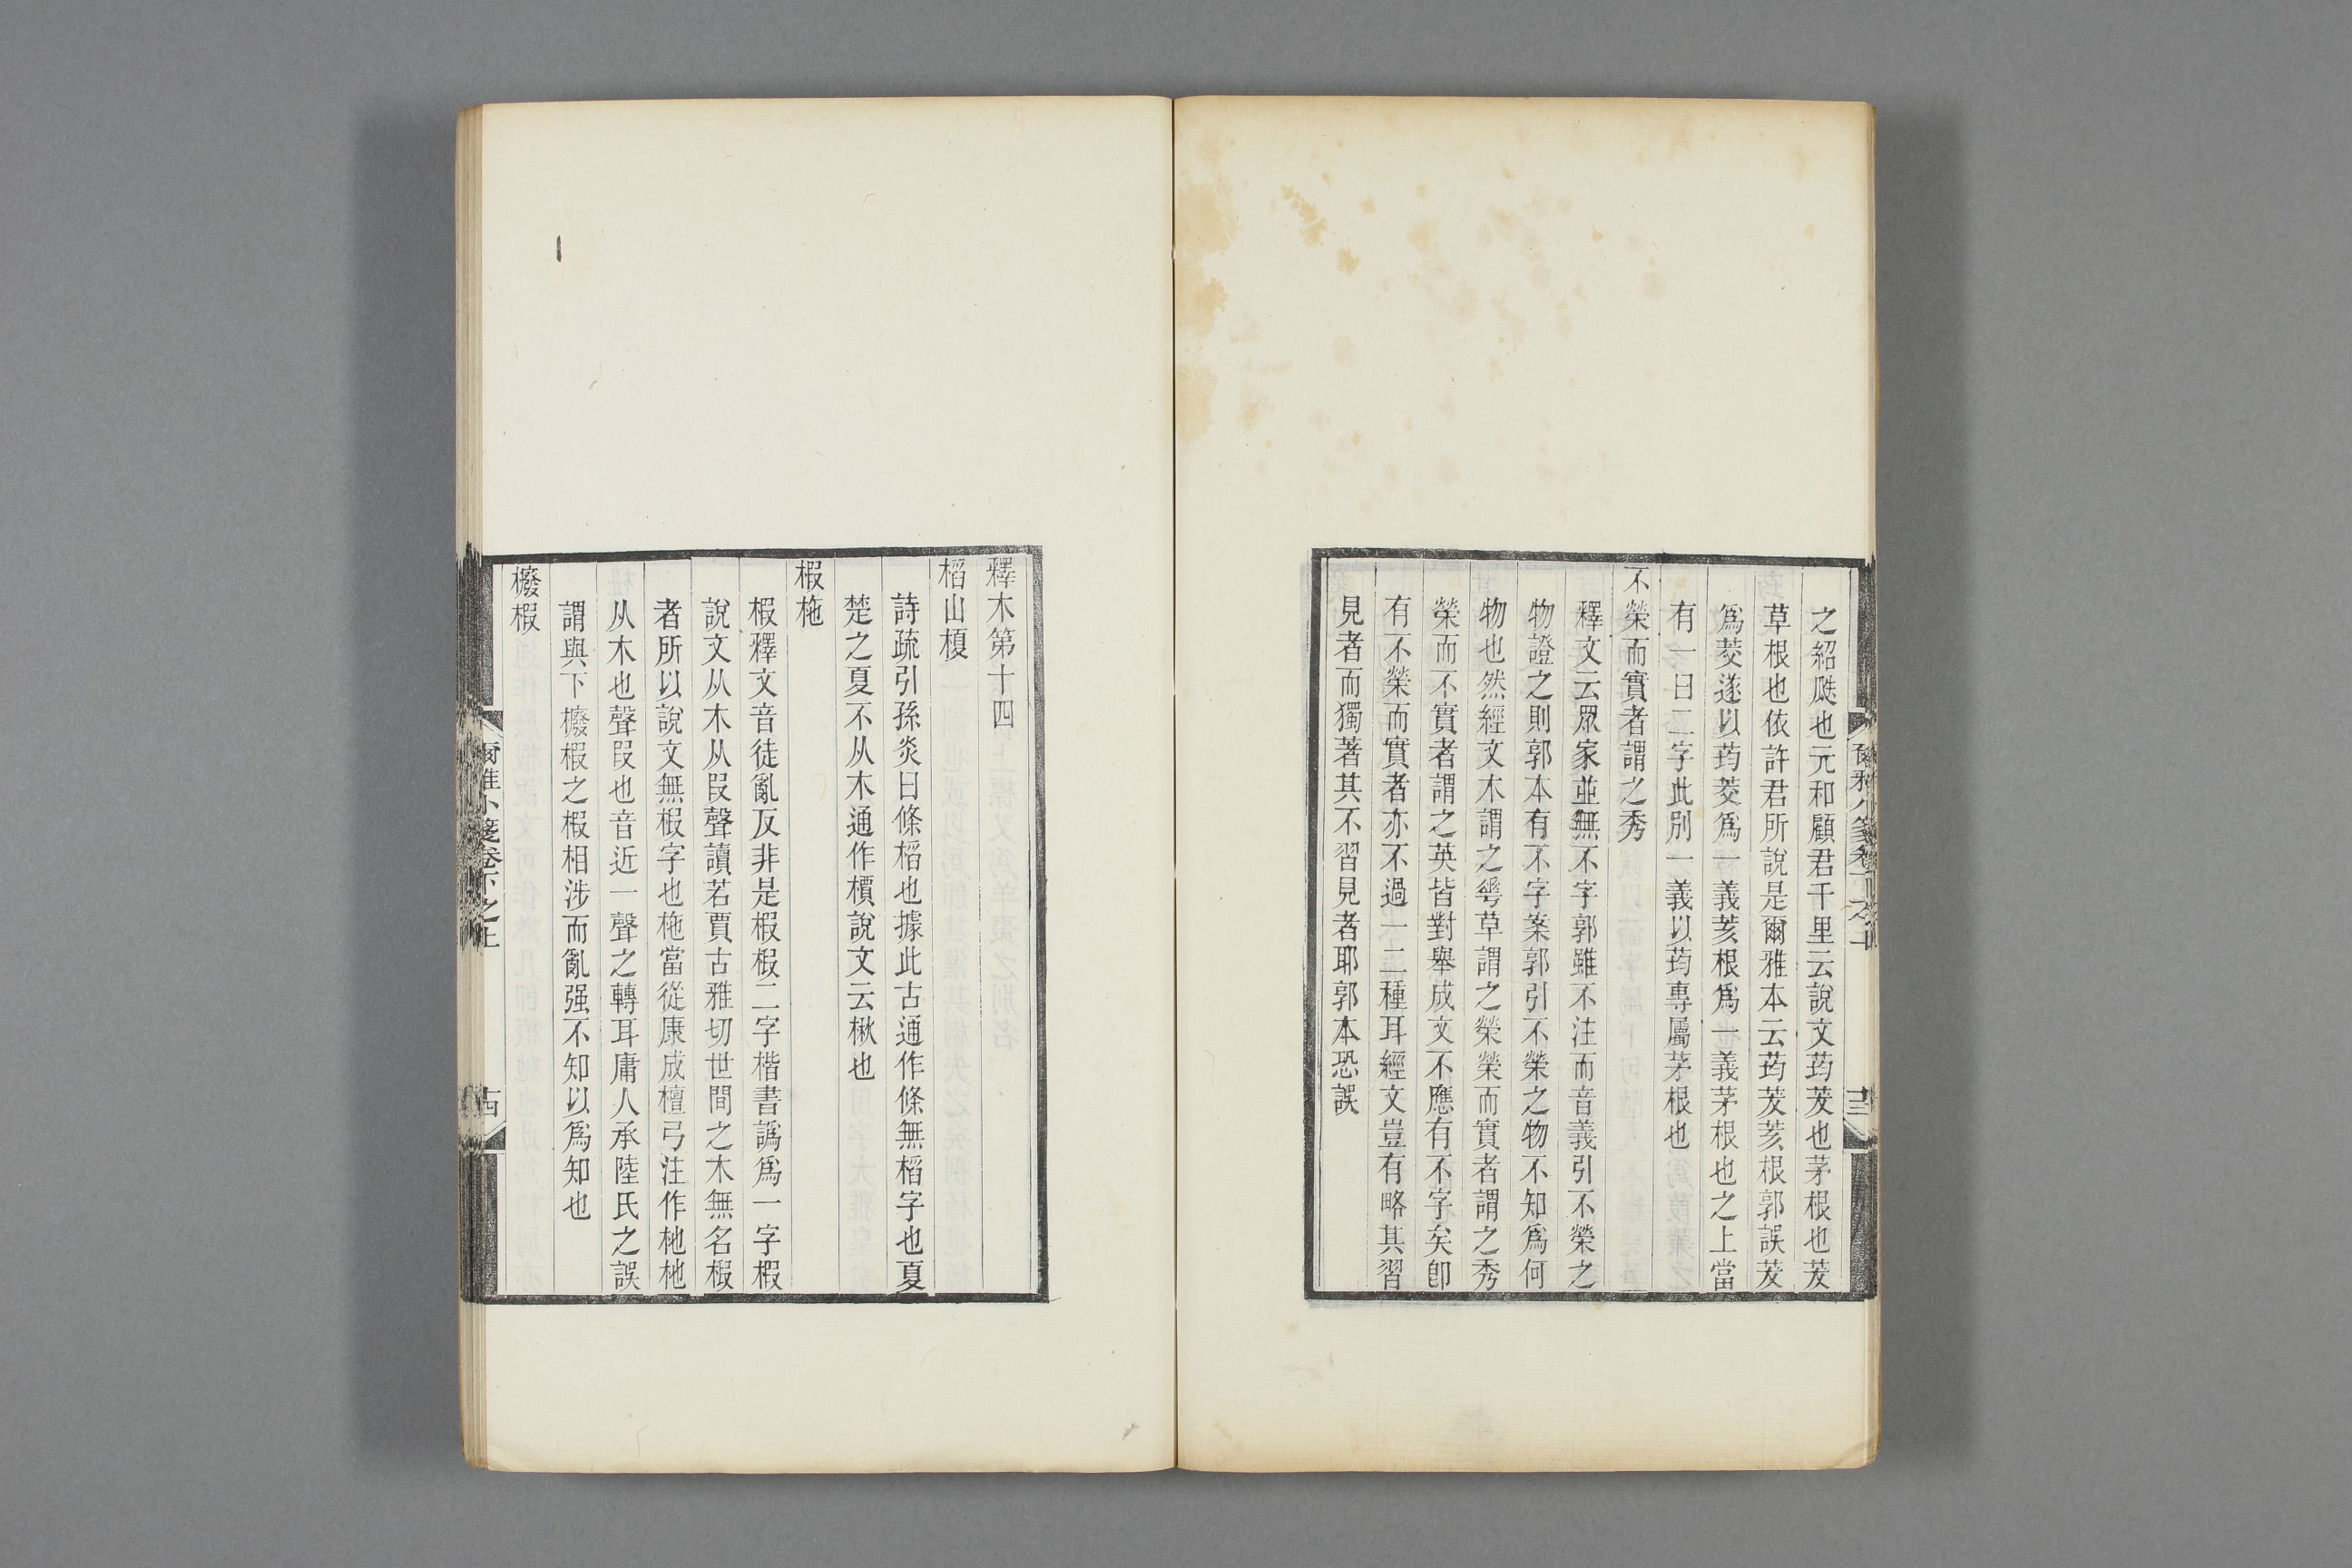 之紹瓞也元和顧君千里云說文荺茇也茅根也茇
草根也依許君所說是爾雅本云荺茇荄根郭誤茇
爲茭遂以荺茭爲一義荄根爲一義茅根也之上當
有一曰二字此別一義以荺專屬茅根也
不榮而實者謂之秀
釋文云眾家並無不字郭雖不注而音義引不榮之
物證之則郭本有不字案郭引不榮之物不知爲何
物也然經文木謂之華草謂之榮榮而實者謂之秀
榮而不實者謂之英皆對舉成文不應有不字矣卽
有不榮而實者亦不過一二種耳經文豈有略其習
見者而獨著其不習見者耶郭本恐誤
釋木第十四
槄山榎
詩疏引孫炎曰條槄也據此古通作條無槄字也夏
楚之夏不从木通作檟說文云楸也
椵柂
椵釋文音徒亂反非是椴椵二字楷書譌爲一字椵
說文从木从叚聲讀若賈古雅切世間之木無名椴
者所以說文無椴字也柂當從康成檀弓注作杝杝
从木也聲叚也音近一聲之轉耳庸人承陸氏之誤
謂與下櫠椵之椵相涉而亂强不知以爲知也
櫠椵
爾雅小箋卷下之上
十四